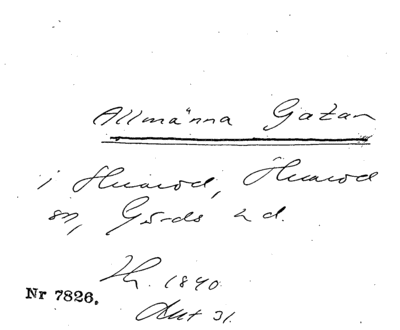 Allmänna Gatan
i Huaröd, Huaröd
sn, Gärds hd.
1840
Nr 7826.
Akt 31.